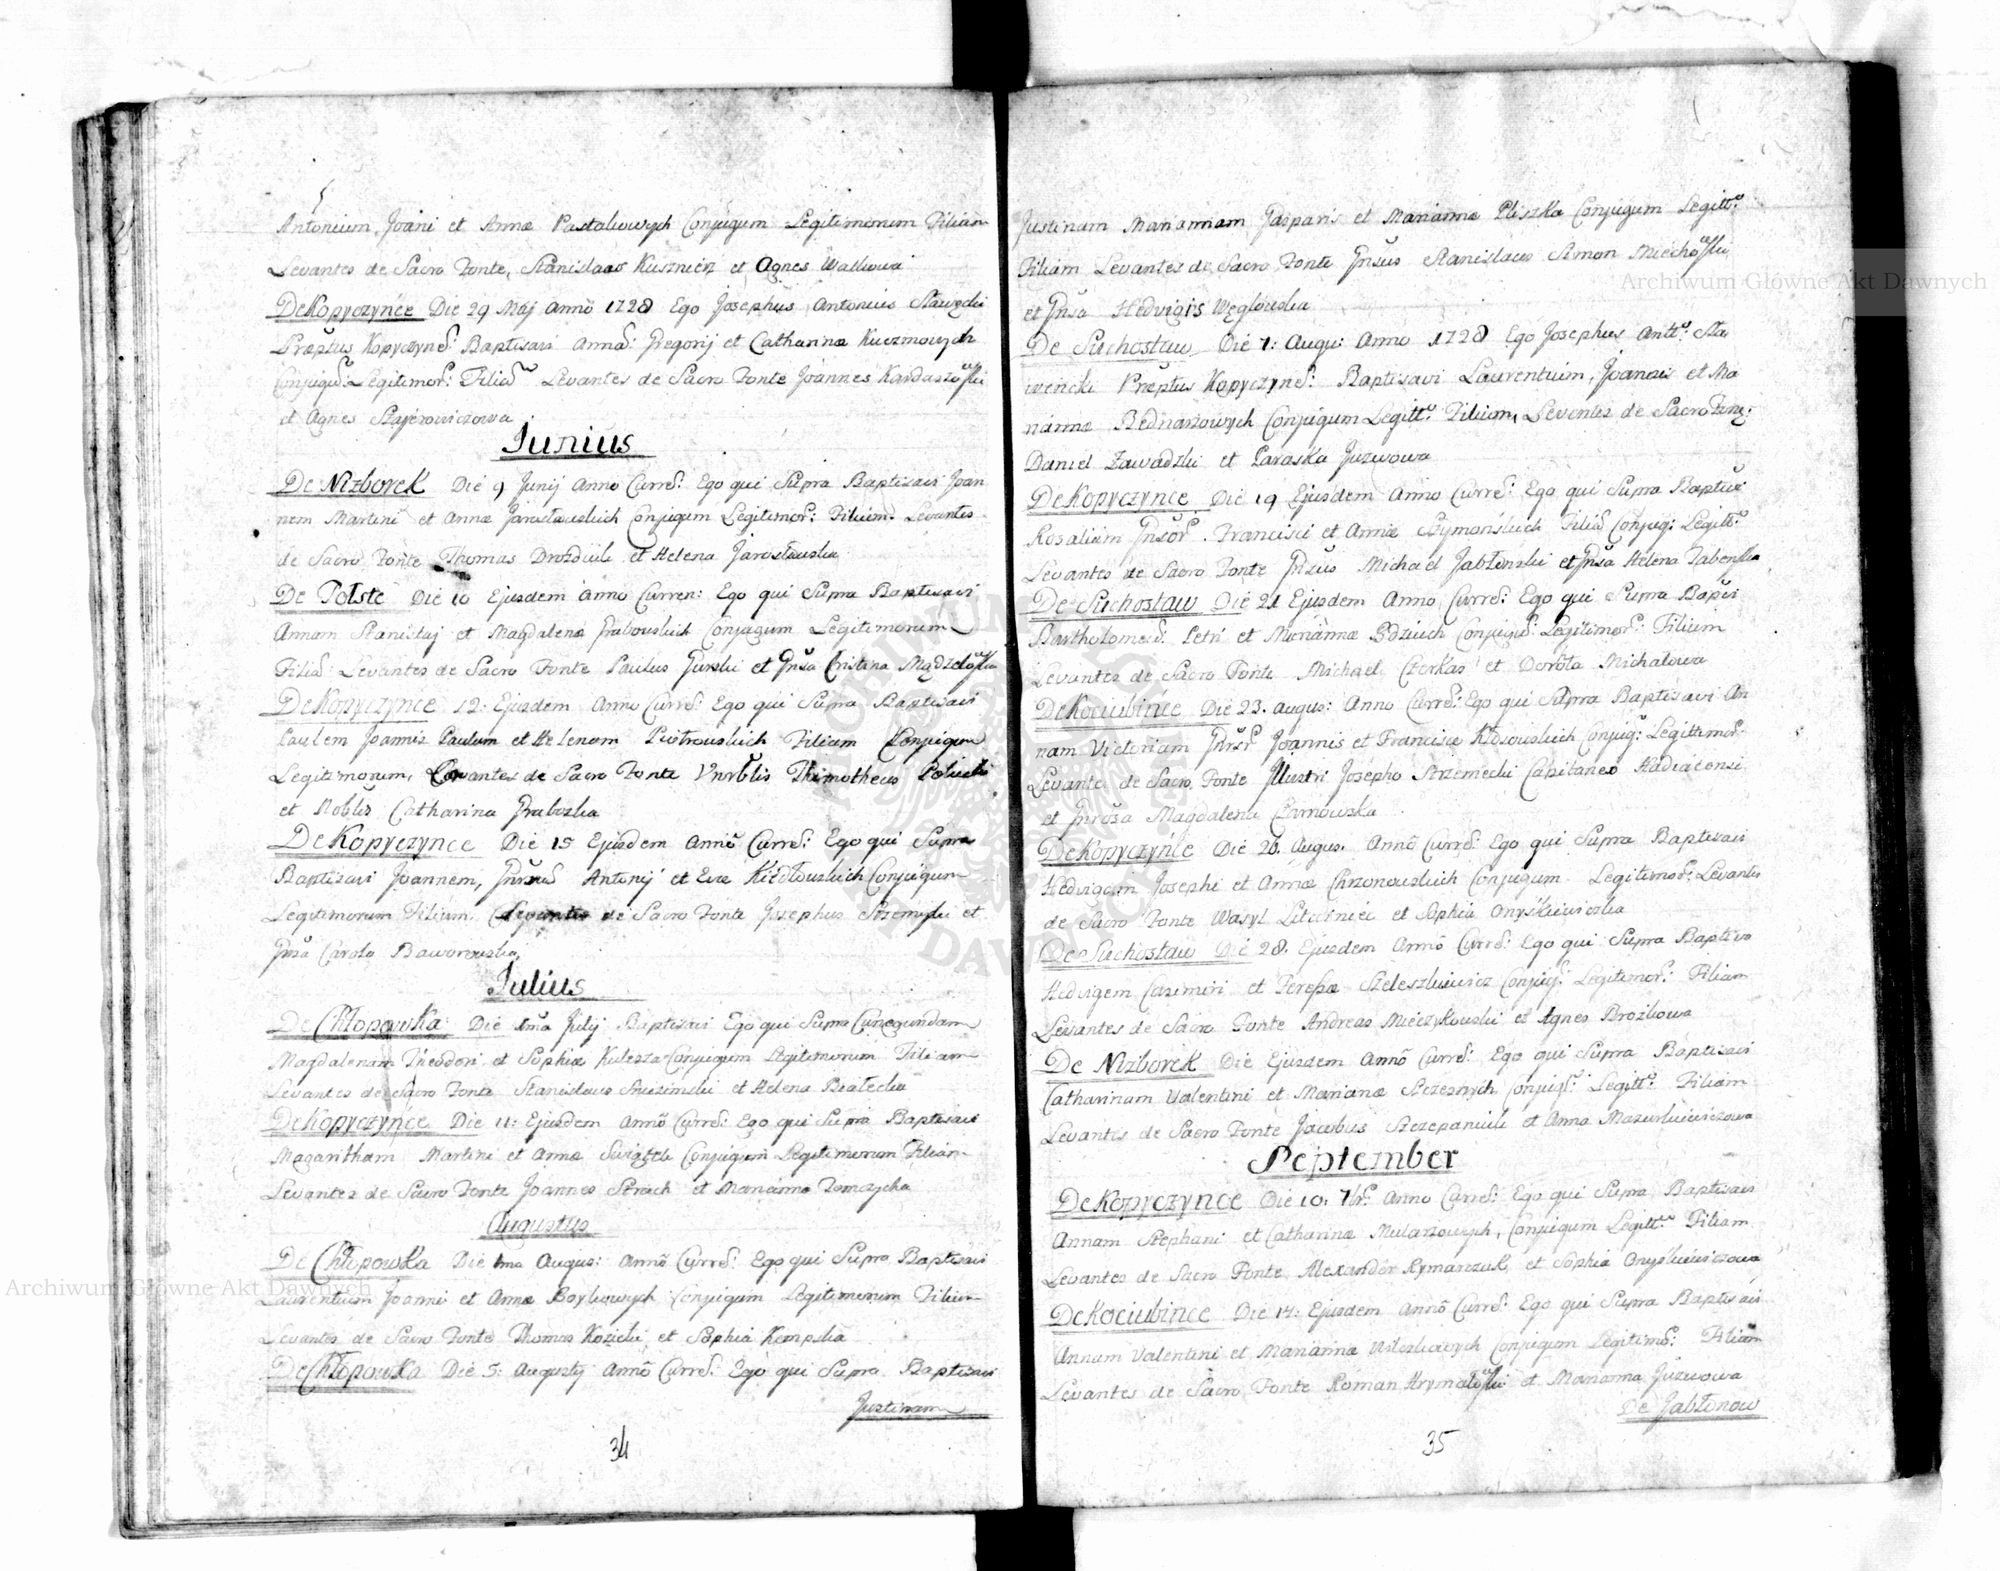 Antonium Joani et Annæ Pastaliowych Conjugum Legitimorum Filium
Levantes de Sacro Fonte, Stanislaus Kusznierz et Agnes Watkowa
De Kopyczynce Die 29 Maij Anno 1728 Ego Josephus Antonius Stawęcki
Præptus Kopyczyne: Baptisavi Annā: Gregorij et Catharinæ Kuczmowych
Conjugū: Legitimor: Filiā Levantes de Sacro Fonte Joannes Kardaszo
et Agnes Stajerowiczowa
Junius
De Nizborek Die 9 Junij Anno Curre: Ego qui Supra Baptisavi Joan
nem Martini et Annæ Jarosławskich Conjugum Legitimor: Filium Levantes
de Sacro Fonte Thomas Drozdiuk et Helena Jarosławska
De Tołste Die 10 Ejusdem Anno Curren: Ego qui Supra Baptisavi
Annam Stanislaj et Magdalenæ Grabowskich Conjugum Legitimorum
Filiā: Levantes de Sacro Fonte Paulus Gurski et Gnsa Cristina
De Kopyczynce 12: Ejusdem Anno Curre: Ego qui Supra Baptisavi
Paulem Joannis Paulum et Helenam Piotrowskich Filium Conjugum
Legitimorum, Levantes de Sacro Fonte Thimotheus
et Noblis Catharina Grabozka
De Kopyczynce Die 15 Ejusdem Anno Curre: Ego qui Supra
Baptisavi Joannem, Antonij et Evæ Kiedłowskich Conjugum
Legitimorum Filium, Levantes de Sacro Fonte Josephus et
Gnsa Carola Baworowska,
Julius
De Chłopowka: Die 1ma Julij Baptisavi Ego qui Supra Cunegundam
Magdalenam Theodori et Sophiæ Kulesza Conjugum Legitimorum Filiam
Levantes de Sacro Fonte Stanislaus et Helena Białecka
De Kopyczynce Die 11: Ejusdem Anno Curre: Ego qui Supra Baptisavi
Magaritham Martini et Annæ Conjugum Legitimorum Filiam
Levantes de Sacro Fonte Joannes Strach et Marianna Tomczycha
Augustus
De Chłopowka Die 1ma Augus: Anno Curre: Ego qui Supra Baptisavi
Laurentium Joanni et Annæ Boykowych Conjugum Legitimorum Filium
Levantes de Sacro Fonte Thomas Kozicki et Sophia Kempska
De Chłopowka Die 5: Augustj Anno Curre: Ego qui Supra Baptisavi
Justinam
34
Justinam Mariannam Gasparis et Mariannæ Pliszka Conjugum Legitt:
Filiam Levantes de Sacro Fonte Gnsus Stanislaus Simon
et Gnsa Hedvigis Węglowska
De Suchostaw Die 1: Augu: Anno 1728 Ego Josephus Antt: Sta
wencki Præptus Kopyczyne: Baptisavi Laurentium, Joannis et Ma
riannæ Bednarzowych Conjugum Legitt: Filium, Levantes de Sacro Fonte:
Daniel Zawadzki et Paraska Juzwowa
De Kopyczynce Die 19 Ejusdem Anno Curre: Ego qui Supra Baptisavi
Rosaliam Gnsor. Francisci et Annæ Szymonskich Filiā Conjug: Legitt:
Levantes de Sacro Fonte Gnsus Michael Jabłonski et Gnsa Helena
De Suchostaw Die 21 Ejusdem Anno Curre: Ego qui Supra Bapti
Bartholomeū: Petri et Mariannæ Conjugū: Legitimor: Filium
Levantes de Sacro Fonte Michael Czerkas et Dorota Michałowa
De Kociubince Die 23. Augus: Anno Curre: Ego qui Supra Baptisavi An
nam Victoriam Joannis et Franciscæ Kłosowskich Conjug: Legittimor:
Levante de Sacro Fonte Illustri Josepho Strzemecki Capitaneo Hadiacensi
et Magdalena Czarnowska
De Kopyczynce Die 26. Augus. Anno Curre: Ego qui Supra Baptisavi
Hedvigem Josephi et Annæ Chrzonowskich Conjugum Legitimor: Levantes
de Sacro Fonte Wasyl et Sophia Onyskiewiczka
De Suchostaw Die 28. Ejusdem Anno Curre: Ego qui Supra Baptivo
Hedvigem Casimiri et Teresæ Szeleszkiewicz Conjug: Legitimor: Filiam
Levantes de Sacro Fonte Andreas Mieczykowski et Agnes Brozkowa
De Nizborek Die Ejusdem Anno Curre: Ego qui Supra Baptisavi
Catharinam Valentini et Marianæ Szczesnych Conjug: Legitt: Filiam
Levantes de Sacro Fonte Jacobus Szczepaniuk et Anna Mazurkiewiczowa
September
De Kopyczynce Die 10. 7br: Anno Curre: Ego qui Supra Baptisavi
Annam Stephani et Catharinæ Mularzowych, Conjugum Legitt: Filiam
Levantes de Sacro Fonte Alexander Rymarczuk, et Sophia Onyskiewiczowa
De Kociubince Die 14: Ejusdem Anno Curre: Ego qui Supra Baptisavi
Annam Valentini et Mariannæ Conjugum Legitimo: Filiam
Levantes de Sacro Fonte Roman et Marianna Juzwowa
De Jabłonow
35
Archiwum Główne Akt Dawnych
Archiwum Główne Akt Dawnych